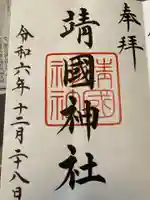 奉拝
靖國神社
靖國神社
令和六年十二月二十八日